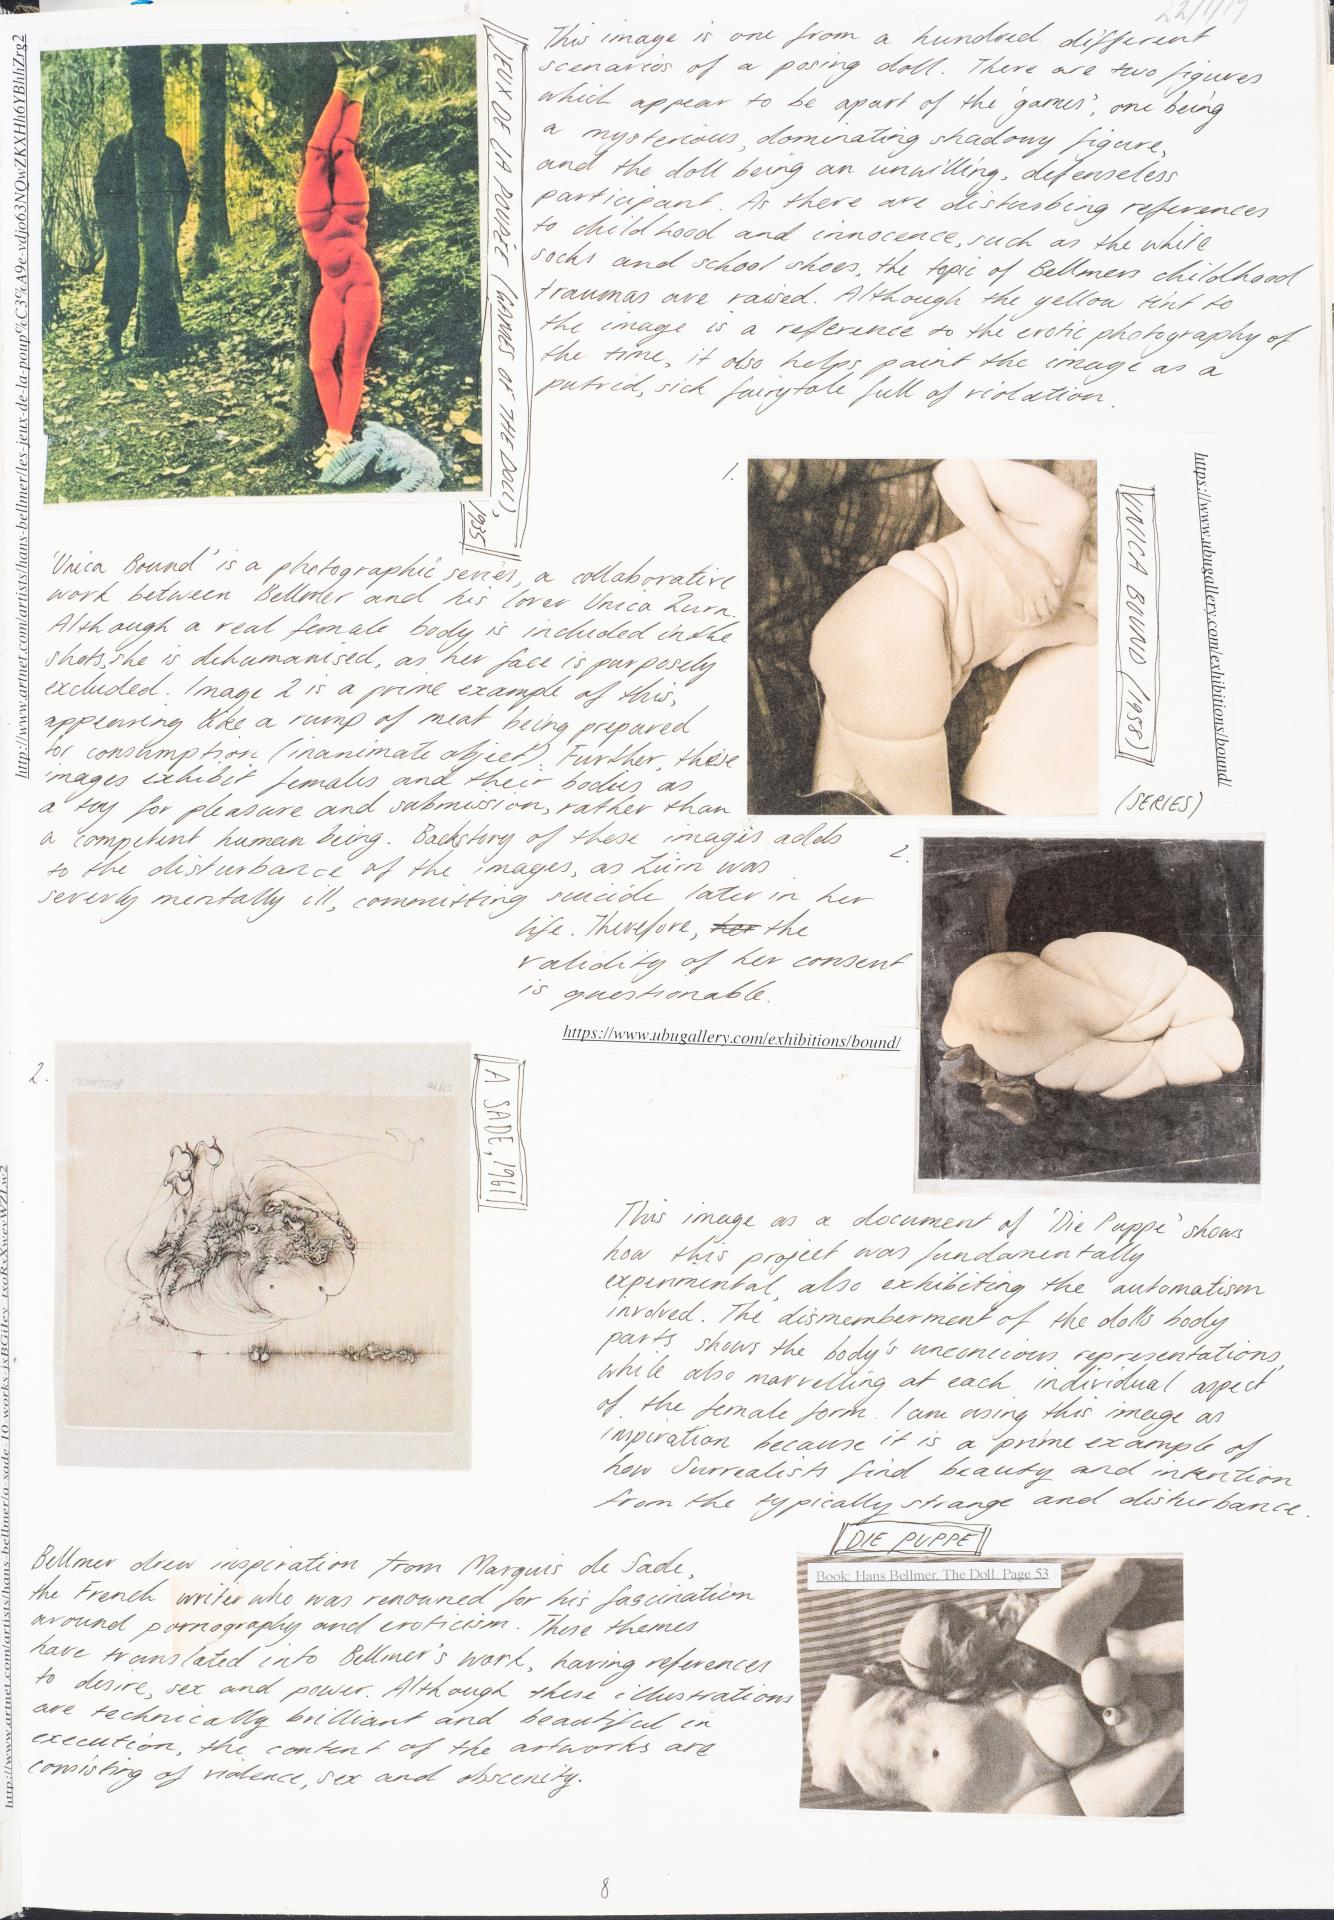 22/11/19
http://www.artnet.com/artists/hans-bellmer/les-jeux-de-la-poup%C3%A9e-vdjo63NQwZKXHh6YBhhZrg2
JEUX DE LA POUPÉE (GAMES OF THE DOLL),
1935
This image is one from a hundred different
scenarios of a posing doll. There are two figures
which appear to be apart of the 'games', one being
a mysterious, dominating shadowy figure,
and the doll being an unwilling, defenseless
participant. As there are disturbing references
to childhood and innocence, such as the white
socks and school shoes, the topic of Bellmers childhood
traumas are raised. Although the yellow tint to
the image is a reference to the erotic photography of
the time, it also helps paint the image as a
putrid, sick fairytale full of violation.
1.
UNICA BOUND (1958)
(SERIES)
https://www.ubugallery.com/exhibitions/bound/
'Unica Bound' is a photographic series, a collaborative
work between Bellmer and his lover Unica Zurn.
Although a real female body is included in the
shots, she is dehumanised, as her face is purposely
excluded. Image 2 is a prime example of this,
appearing like a rump of meat being prepared
for consumption (inanimate object). Further, these
images exhibit females and their bodies as
a toy for pleasure and submission, rather than
a competent human being. Backstory of these images adds
to the disturbance of the images, as Zürn was
severly mentally ill, committing suicide later in her
life. Therefore, her the
validity of her consent
is questionable.
2.
https://www.ubugallery.com/exhibitions/bound/
2.
A SADE, 1961
This image as a document of 'Die Puppe' shows
how this project was fundamentally
experimental, also exhibiting the automatism
involved. The dismemberment of the dolls body
parts, shows the body's unconcious representations,
while also marvelling at each individual aspect
of the female form. I am using this image as
inspiration because it is a prime example of
how Surrealists find beauty and intention
from the typically strange and disturbance.
DIE PUPPE
Book: Hans Bellmer, The Doll. Page 53
Bellmer drew inspiration from Marquis de Sade,
the French writer who was renowned for his fascination
around pornography and eroticism. These themes
have translated into Bellmer's work, having references
to desire, sex and power. Although these illustrations
are technically brilliant and beautiful in
execution, the content of the artworks are
consisting of violence, sex and obscenity.
8